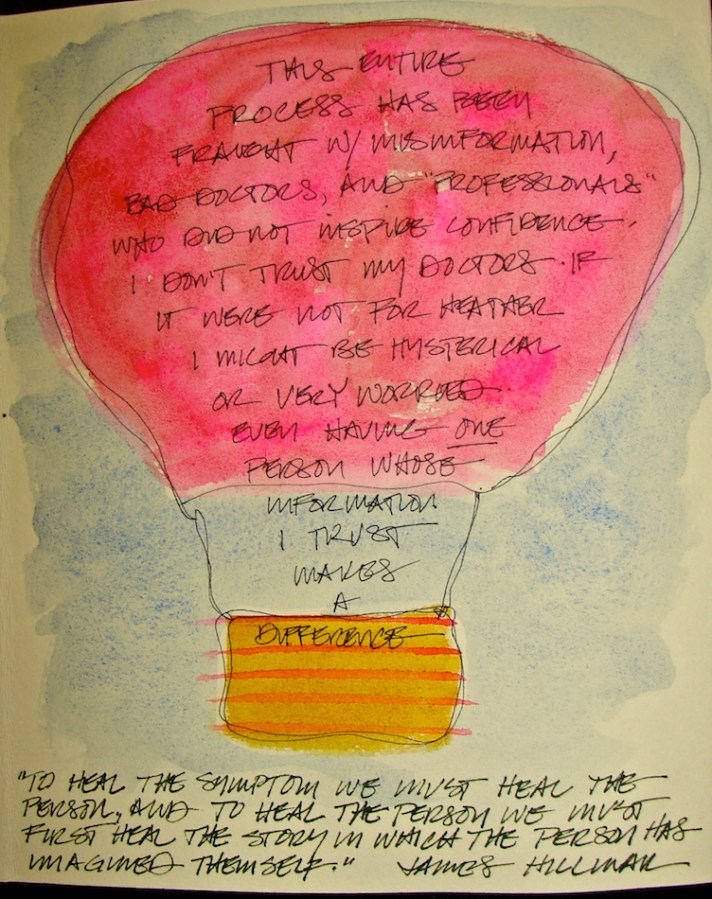 THIS ENTIRE
PROCESS HAS BEEN
FRAUGHT W/ MISINFORMATION,
BAD DOCTORS, AND "PROFESSIONALS"
WHO DID NOT INSPIRE CONFIDENCE.
I DON'T TRUST MY DOCTORS. IF
IT WERE NOT FOR HEATHER
I MIGHT BE HYSTERICAL
OR VERY WORRIED.
EVEN HAVING ONE
PERSON WHOSE
INFORMATION
I TRUST
MAKES
A
DIFFERENCE
"TO HEAL THE SYMPTOM WE MUST HEAL THE
PERSON, AND TO HEAL THE PERSON WE MUST
FIRST HEAL THE STORY IN WHICH THE PERSON HAS
IMAGINED THEMSELF." JAMES HILLMAN